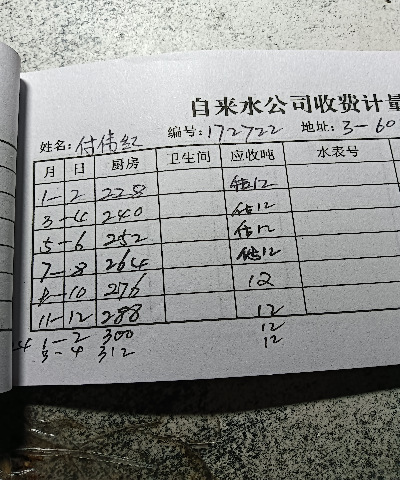 自来水公司收费计量
姓名: 付伟红 编号: 172722 地址: 3-60
月 日 厨房 卫生间 应收吨 水表号
1-2 228 估12
3-4 240 估12
5-6 252 估12
7-8 264 估12
9-10 276 12
11-12 288 12
1-2 300 12
3-4 312 12